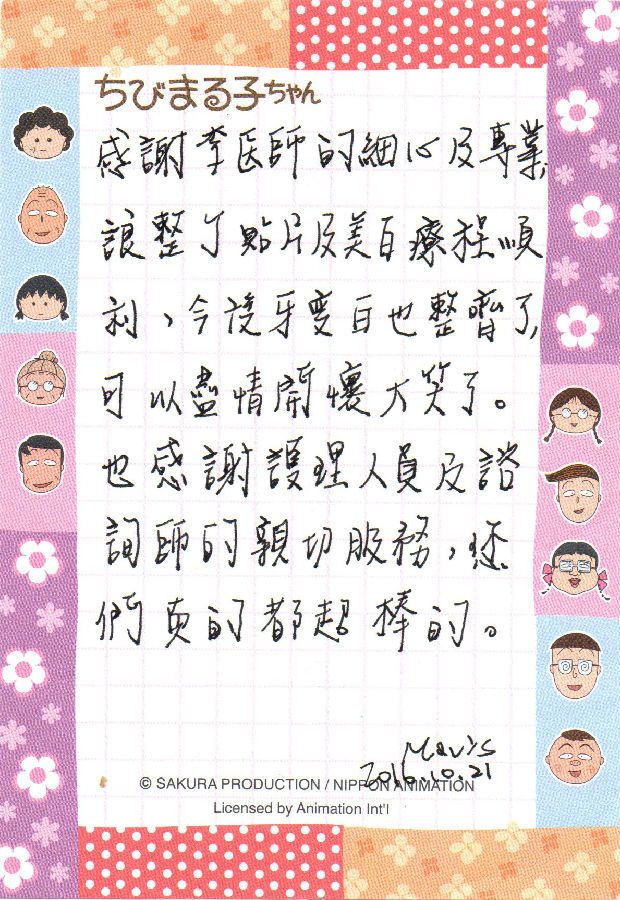 ちびまる子ちゃん
感謝李医師的細心及專業,
讓整個貼片及美白療程順
利,令我牙變白也整齊了,
可以盡情開懷大笑了。
也感謝護理人員及諮
詢師的親切服務,您
們真的都超棒的。
Mavis
2016.10.21
© SAKURA PRODUCTION / NIPPON ANIMATION
Licensed by Animation Int'l